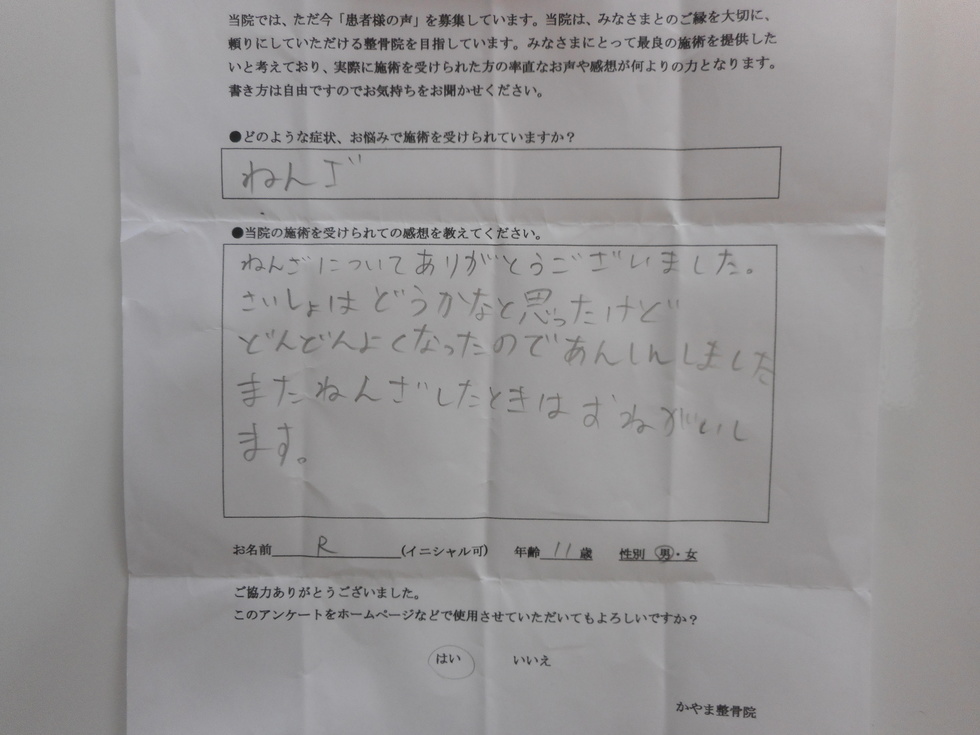 当院では、ただ今「患者様の声」を募集しています。当院は、みなさまとのご縁を大切に、
頼りにしていただける整骨院を目指しています。みなさまにとって最良の施術を提供した
いと考えており、実際に施術を受けられた方の率直なお声や感想が何よりの力となります。
書き方は自由ですのでお気持ちをお聞かせください。
●どのような症状、お悩みで施術を受けられていますか？
ねんざ
●当院の施術を受けられての感想を教えてください。
ねんざについてありがとうございました。
さいしょはどうかなと思ったけど
どんどんよくなったのであんしんしました
またねんざしたときはおねがいし
ます。
お名前 R (イニシャル可) 年齢 11 歳 性別 男・女
ご協力ありがとうございました。
このアンケートをホームページなどで使用させていただいてもよろしいですか？
はい いいえ
かやま整骨院